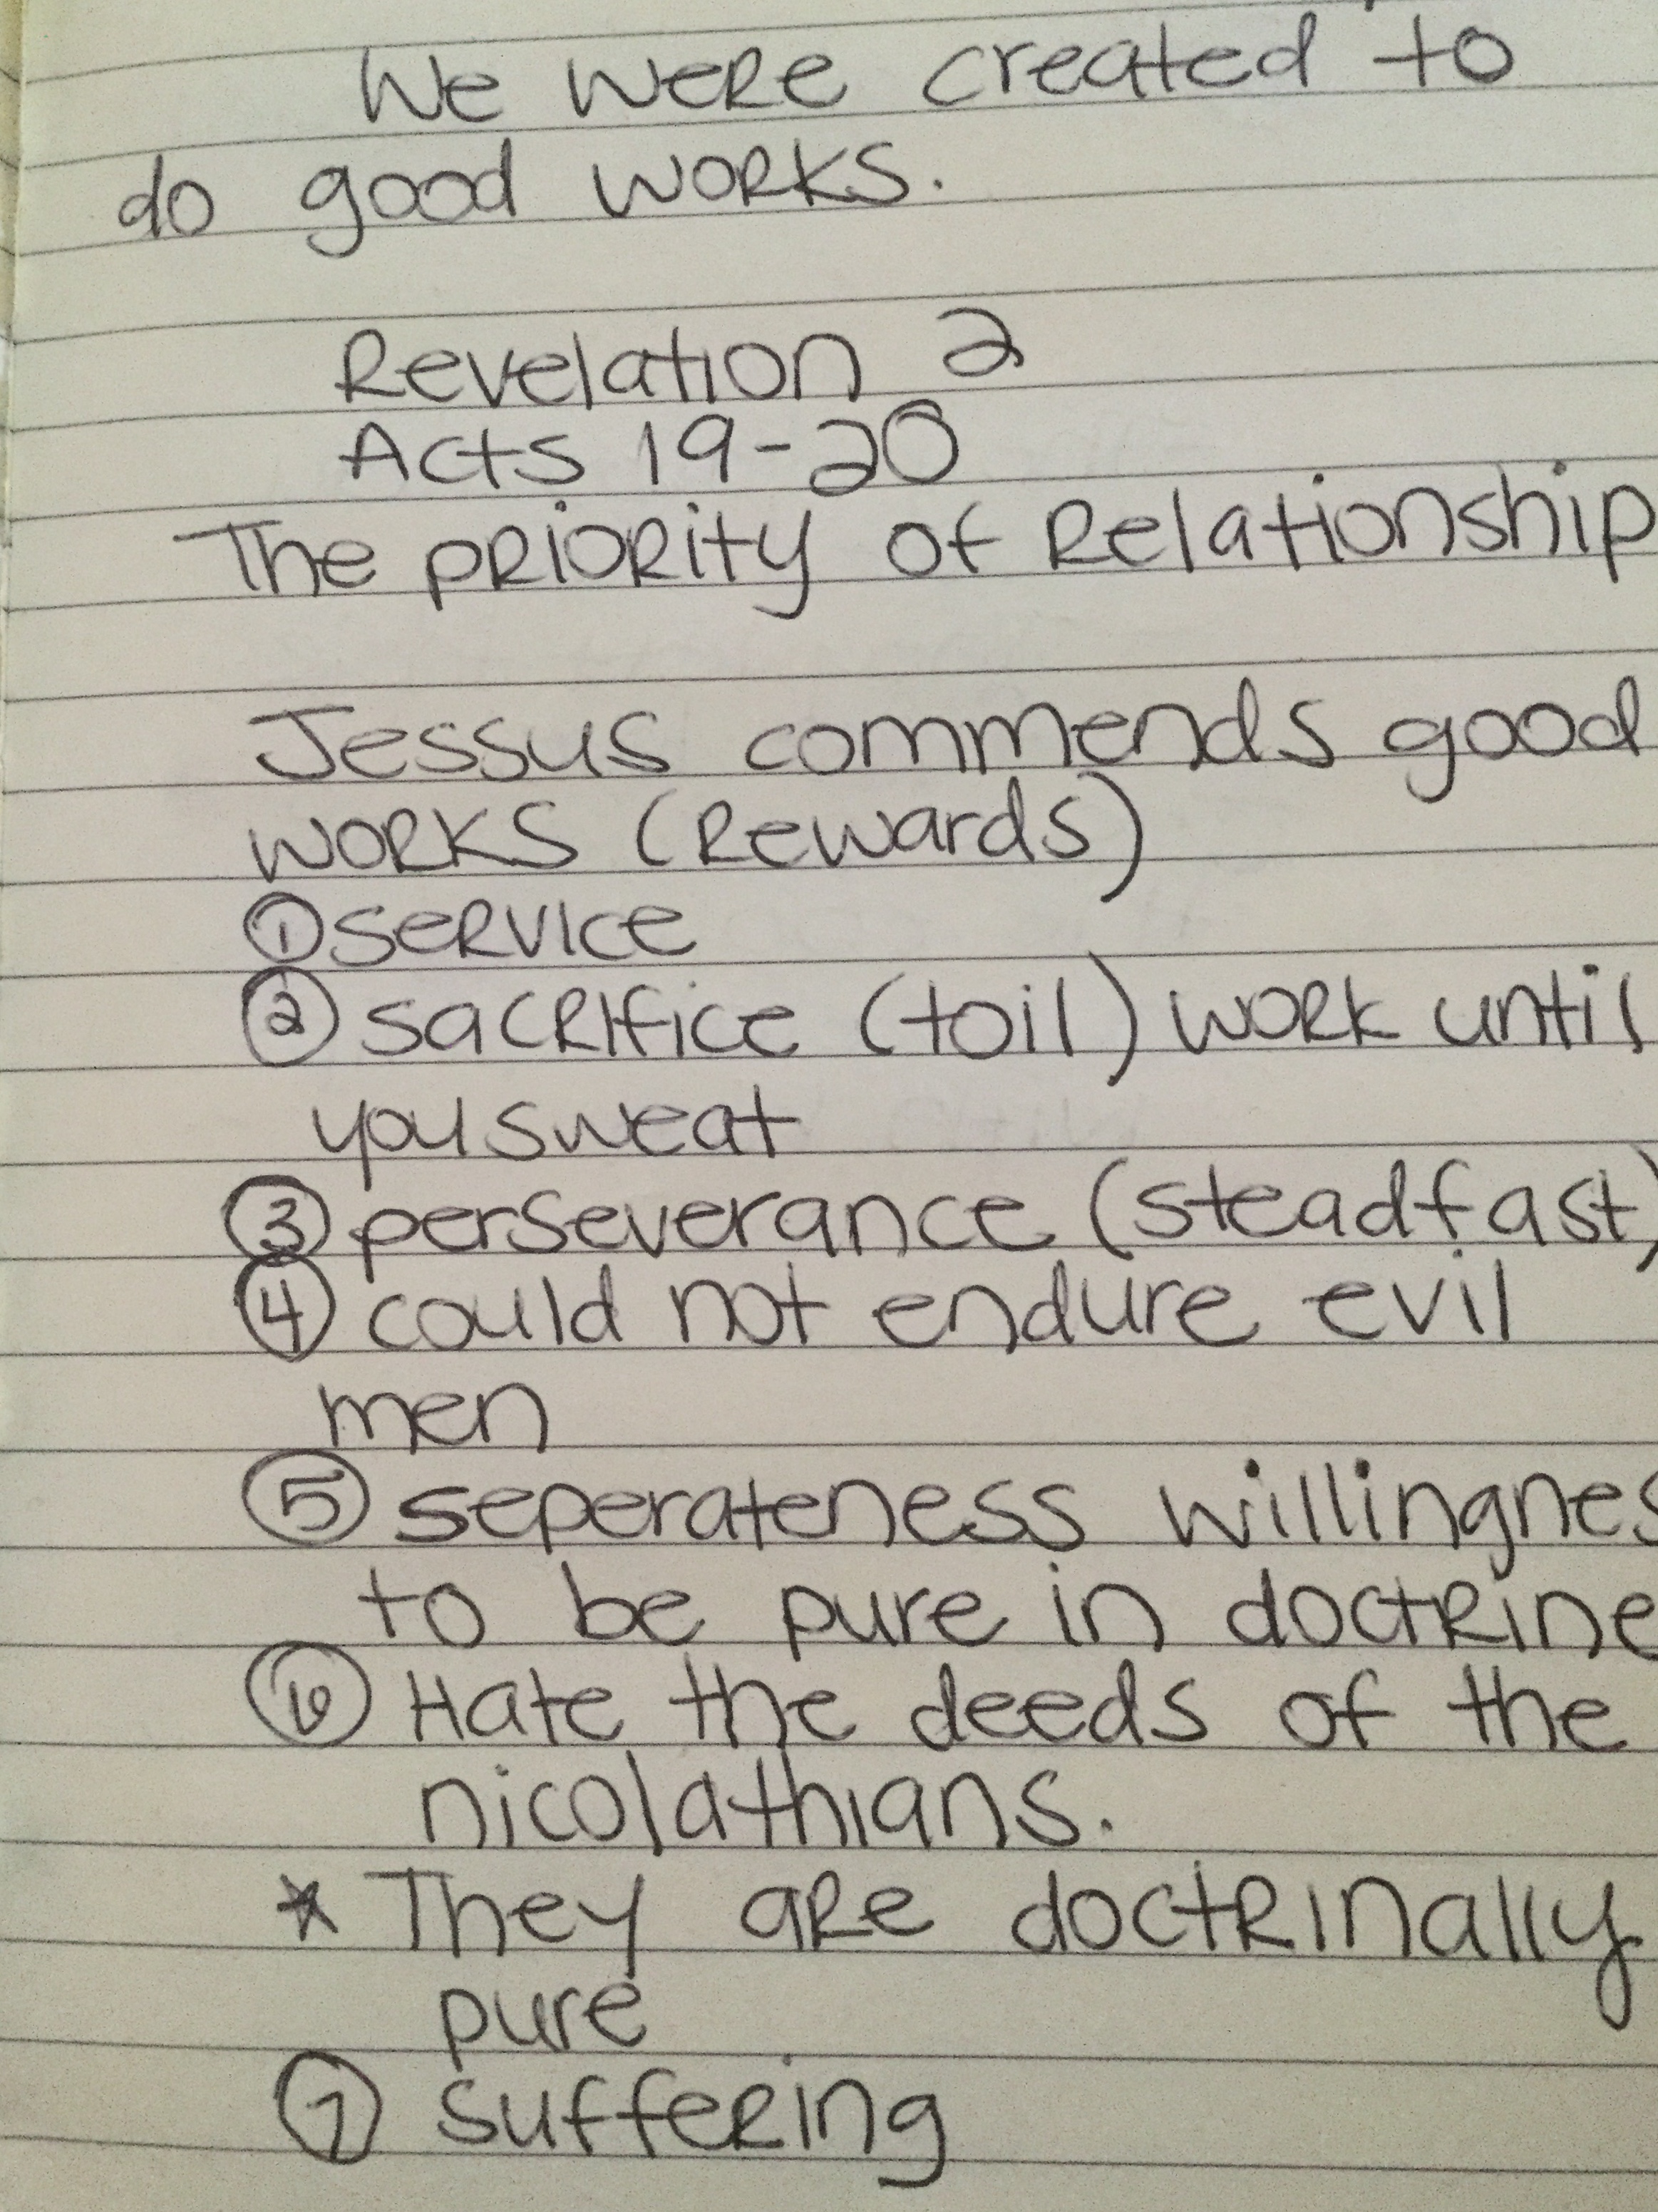 We were created to
do good works.
Revelation 2
Acts 19-20
The priority of Relationship
Jessus commends good
works (Rewards)
① service
② sacrifice (toil) work until
you sweat
③ perseverance (steadfast)
④ could not endure evil
men
⑤ seperateness willingnes
to be pure in doctrine
⑥ Hate the deeds of the
nicolathians.
* They are doctrinally
pure
⑦ suffering